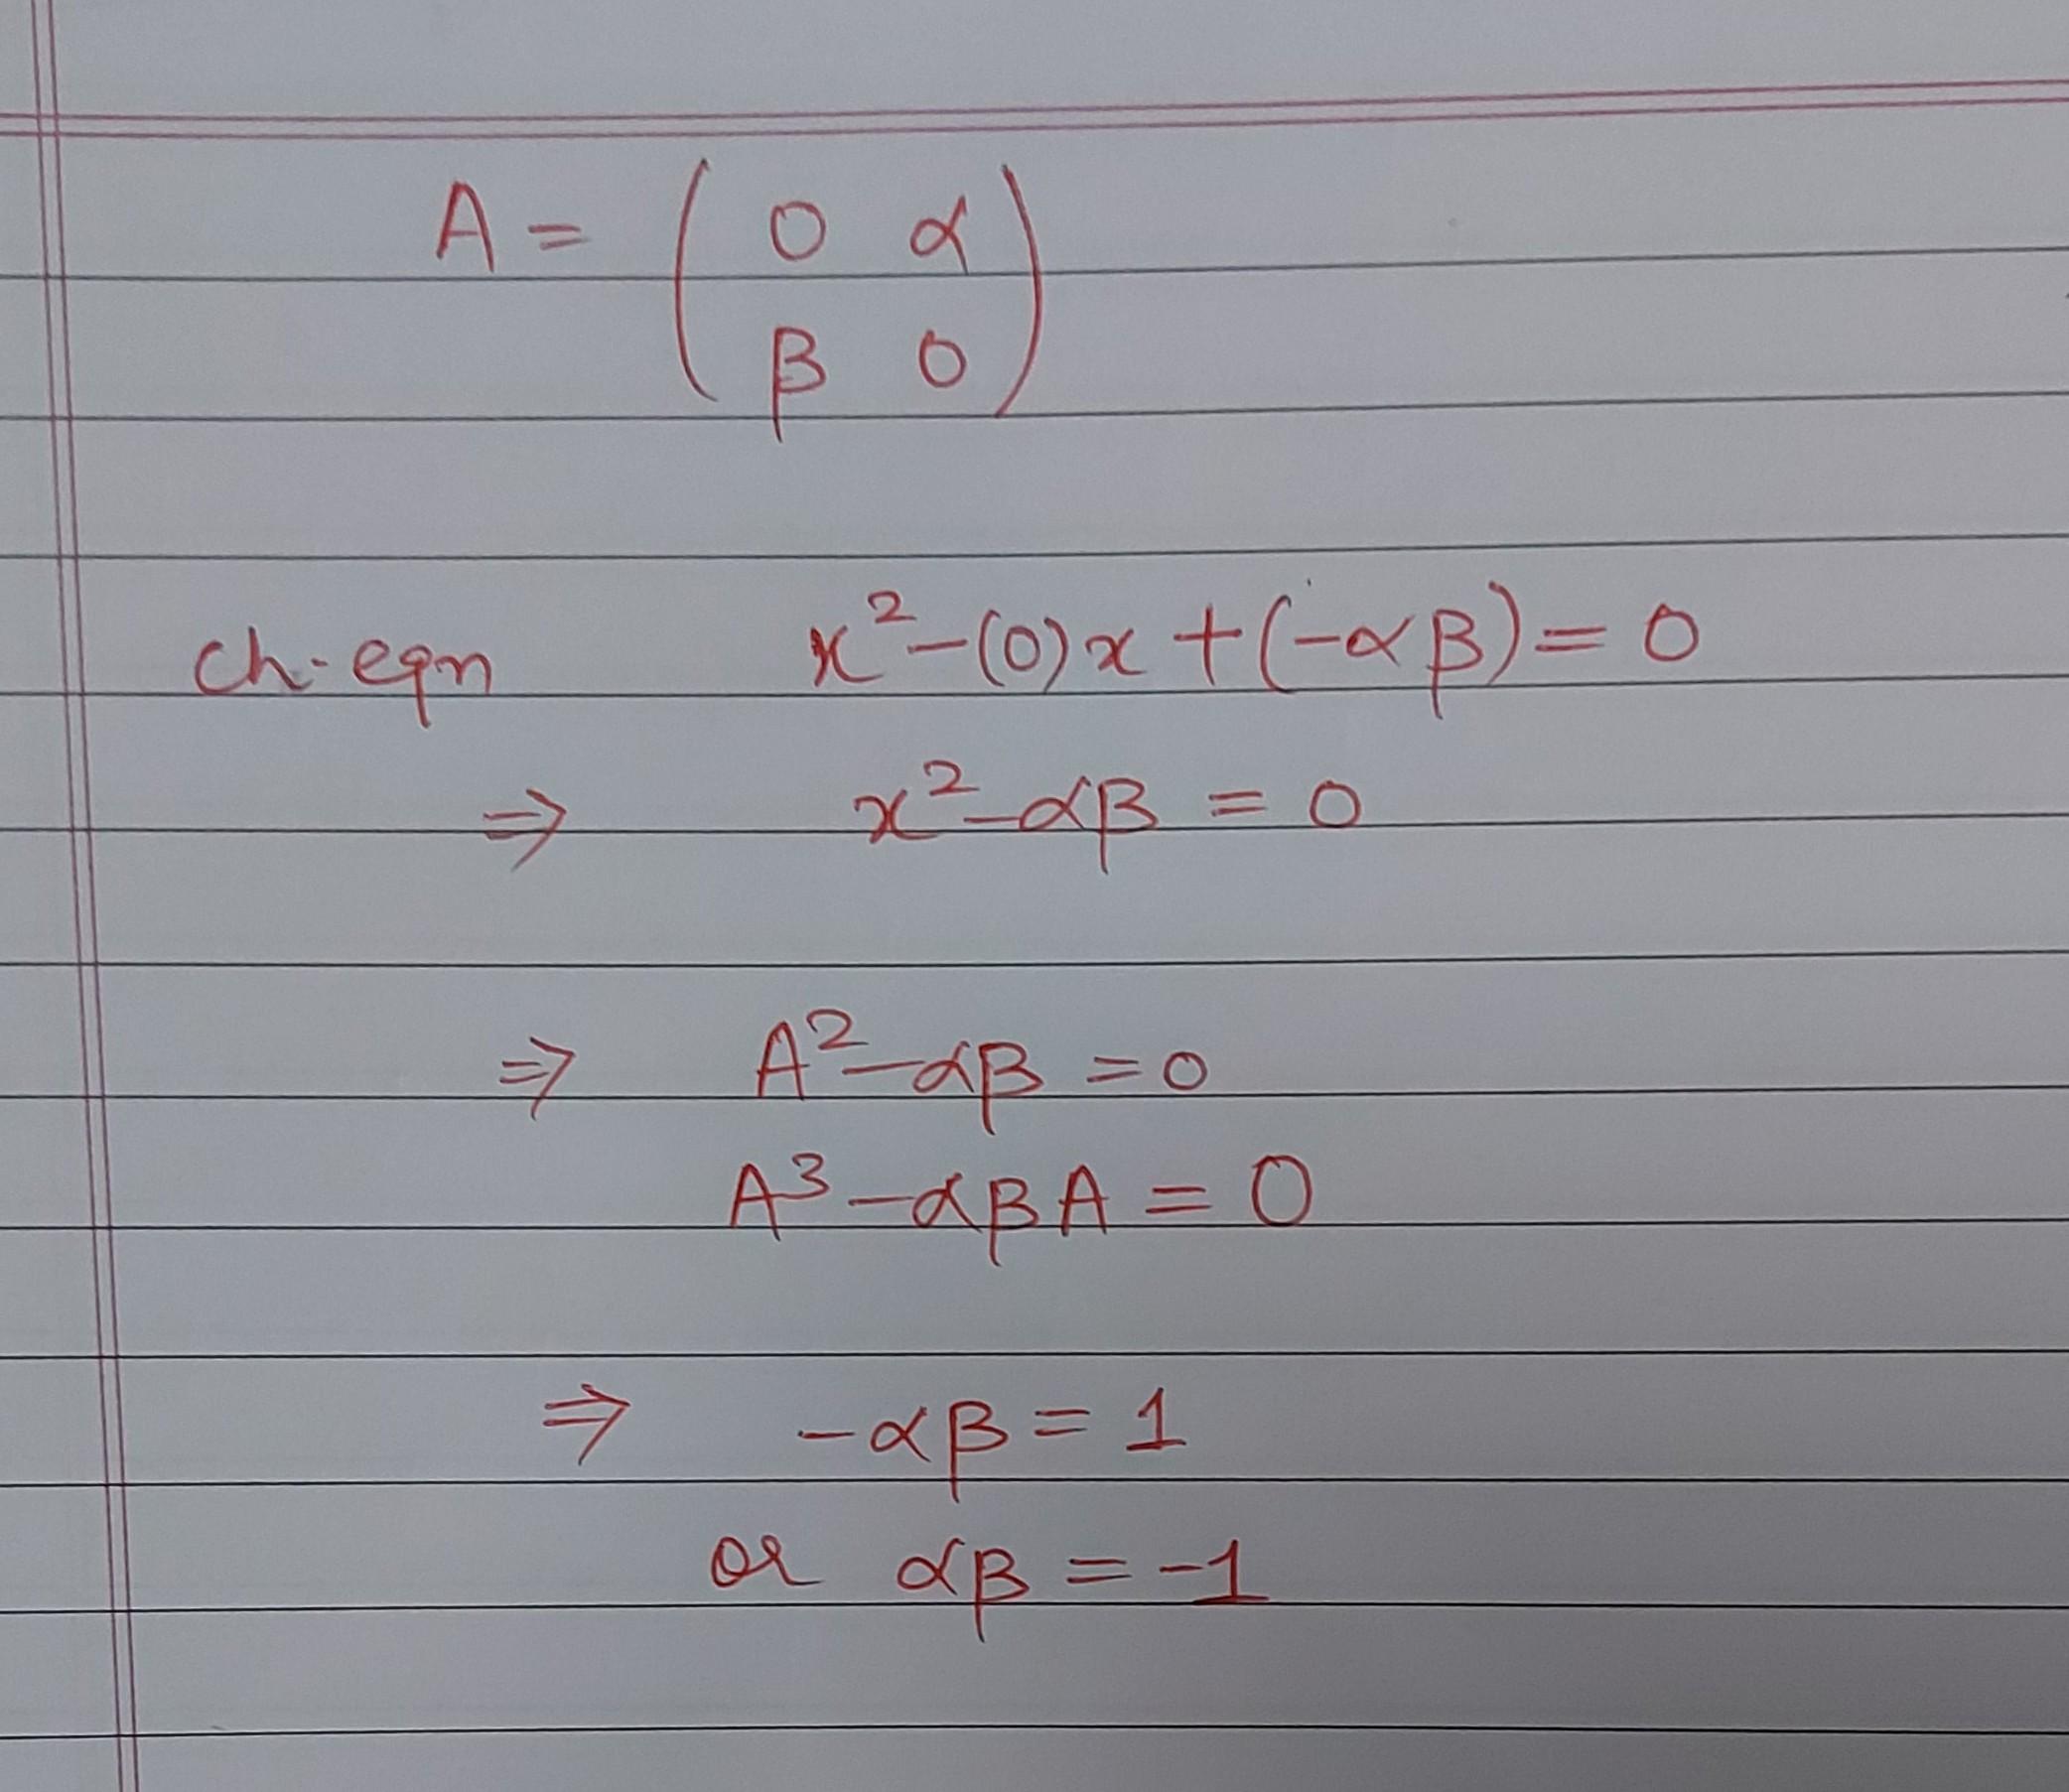 A = ( 0 α
β 0 )
ch. eqn x² - (0)x + (-αβ) = 0
⇒ x² - αβ = 0
⇒ A² - αβ = 0
A³ - αβA = 0
⇒ -αβ = 1
or αβ = -1